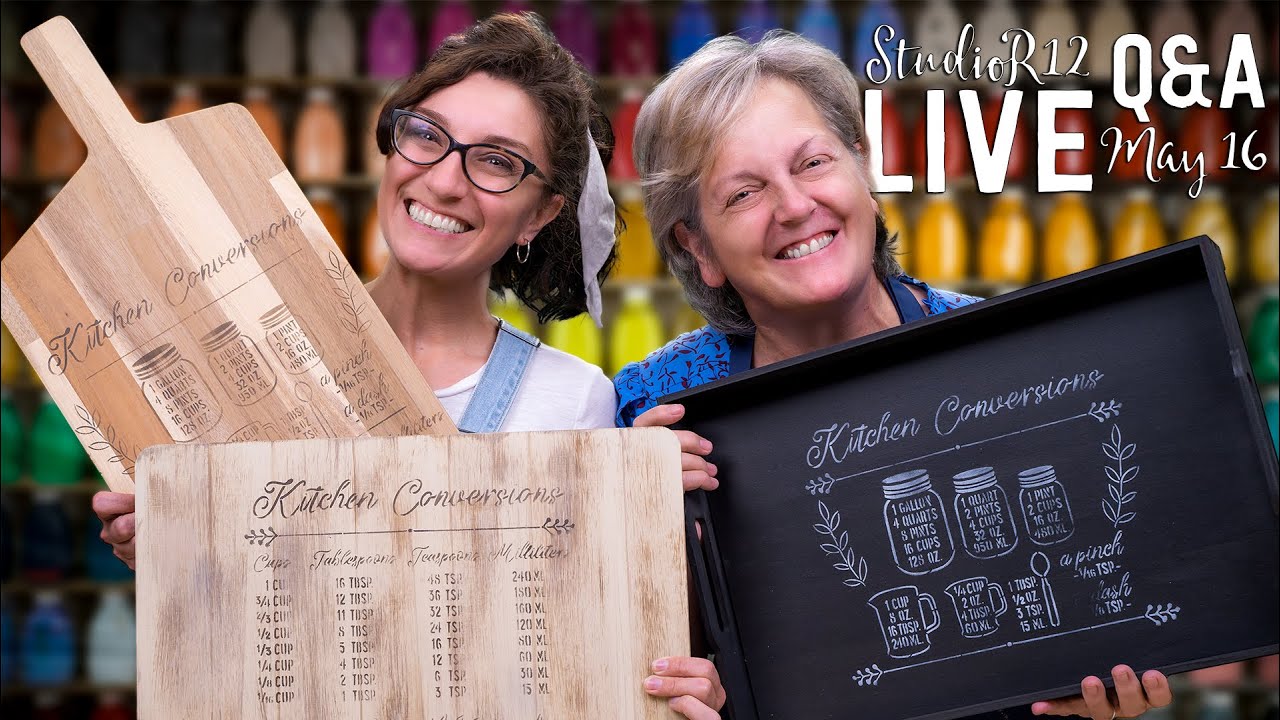 StudioR12
LIVE
Q&A
May 16
Kitchen Conversions
1 GALLON
4 QUARTS
8 PINTS
16 CUPS
128 OZ
1 QUART
2 PINTS
4 CUPS
32 OZ
950 ML
1 PINT
2 CUPS
16 OZ
480 ML
a pinch
-1/16 TSP.-
a dash
Kitchen Conversions
Cups Tablespoons Teaspoons Milliliters
1 CUP 16 TBSP. 48 TSP. 240 ML
3/4 CUP 12 TBSP. 36 TSP. 180 ML
2/3 CUP 11 TBSP. 32 TSP. 160 ML
1/2 CUP 8 TBSP. 24 TSP. 120 ML
1/3 CUP 5 TBSP. 16 TSP. 80 ML
1/4 CUP 4 TBSP. 12 TSP. 60 ML
1/8 CUP 2 TBSP. 6 TSP. 30 ML
1/16 CUP 1 TBSP. 3 TSP. 15 ML
Kitchen Conversions
1 GALLON
4 QUARTS
8 PINTS
16 CUPS
128 OZ
1 QUART
2 PINTS
4 CUPS
32 OZ
950 ML
1 PINT
2 CUPS
16 OZ
480 ML
a pinch
-1/16 TSP.-
dash
1 CUP
8 OZ
16 TBSP.
240 ML
1/4 CUP
2 OZ
4 TBSP.
60 ML
1 TBSP.
1/2 OZ
3 TSP.
15 ML